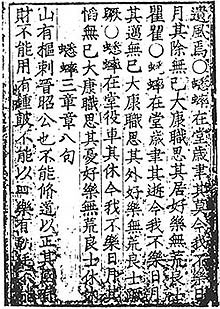 遺風焉○蟋蟀在堂歲聿其莫今我不樂日
月其除無已大康職思其居好樂無荒良士
瞿瞿○蟋蟀在堂歲聿其逝今我不樂日月
其邁無已大康職思其外好樂無荒良士蹶
蹶○蟋蟀在堂役車其休今我不樂日月其
慆無已大康職思其憂好樂無荒良士休休
蟋蟀三章章八句
山有樞刺晉昭公也不能脩道以正其國有
財不能用有鐘鼓不能以自樂有朝